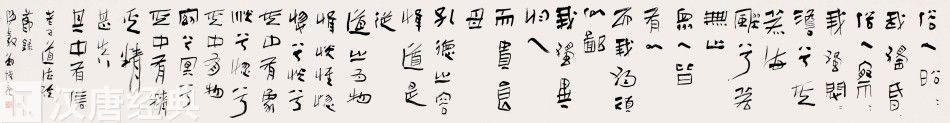 俗人昭々
我獨昏
俗人察々
我獨悶々
澹兮其
若海
飂兮若
無止
衆人皆
有以
而我獨頑
似鄙
我獨異
於人
而貴食
母
孔德之容
惟道是
從
道之爲物
惟恍惟惚
惚兮恍兮
其中有象
恍兮惚兮
其中有物
窈兮冥兮
其中有精
其精
甚真
其中有信
老子道德經
節錄
汉唐经典